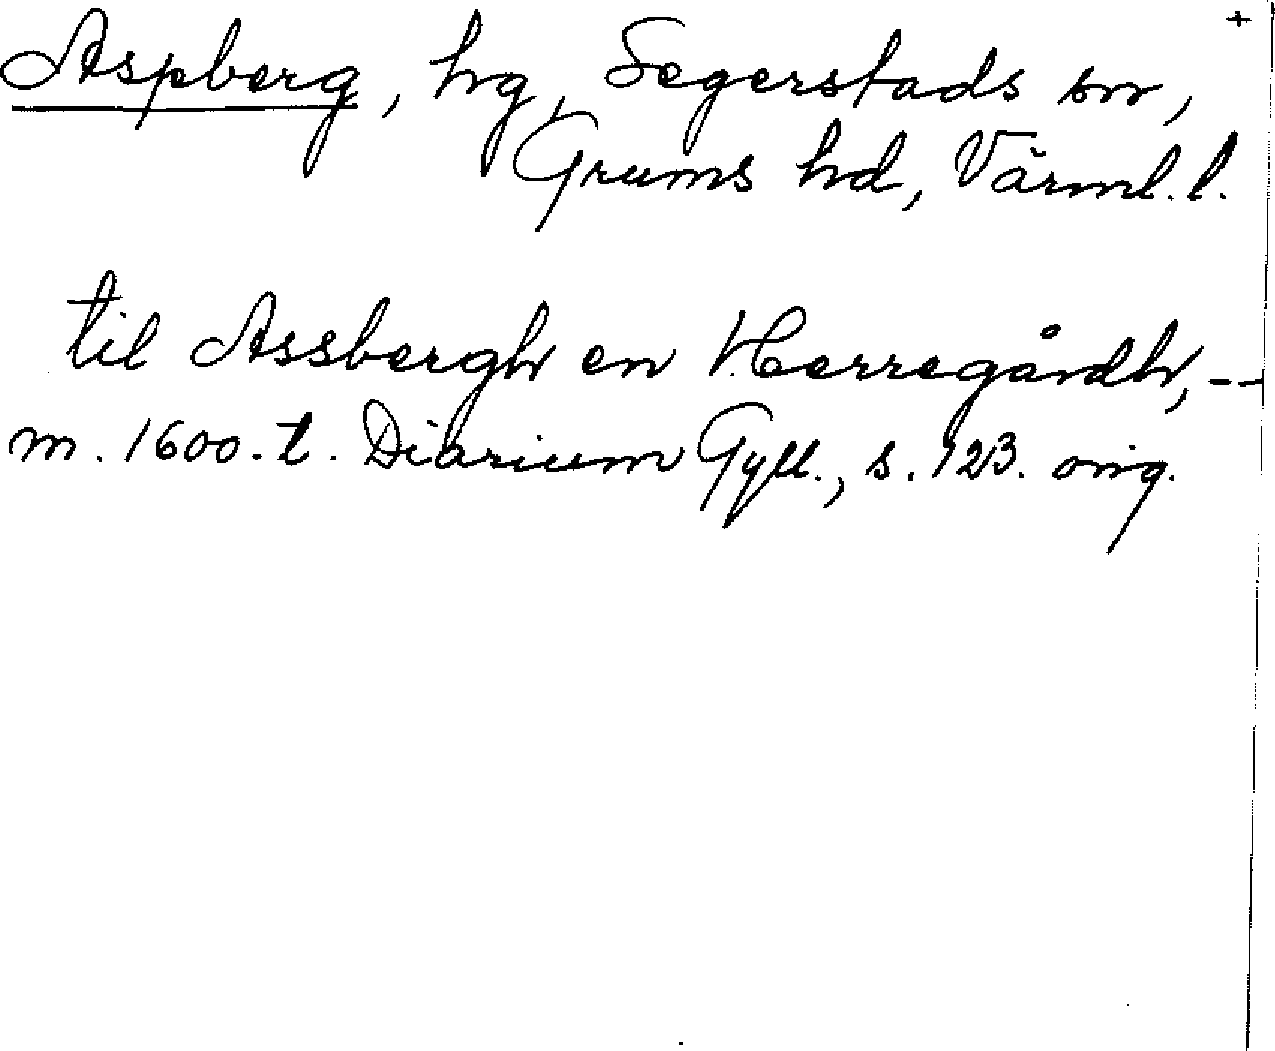 +
Aspberg, hg, Segerstads sn,
Grums hd, Värml. l.
til Assbergh en Herregårdh, --
m. 1600. t. Diarium Gyll., s. 123. orig.